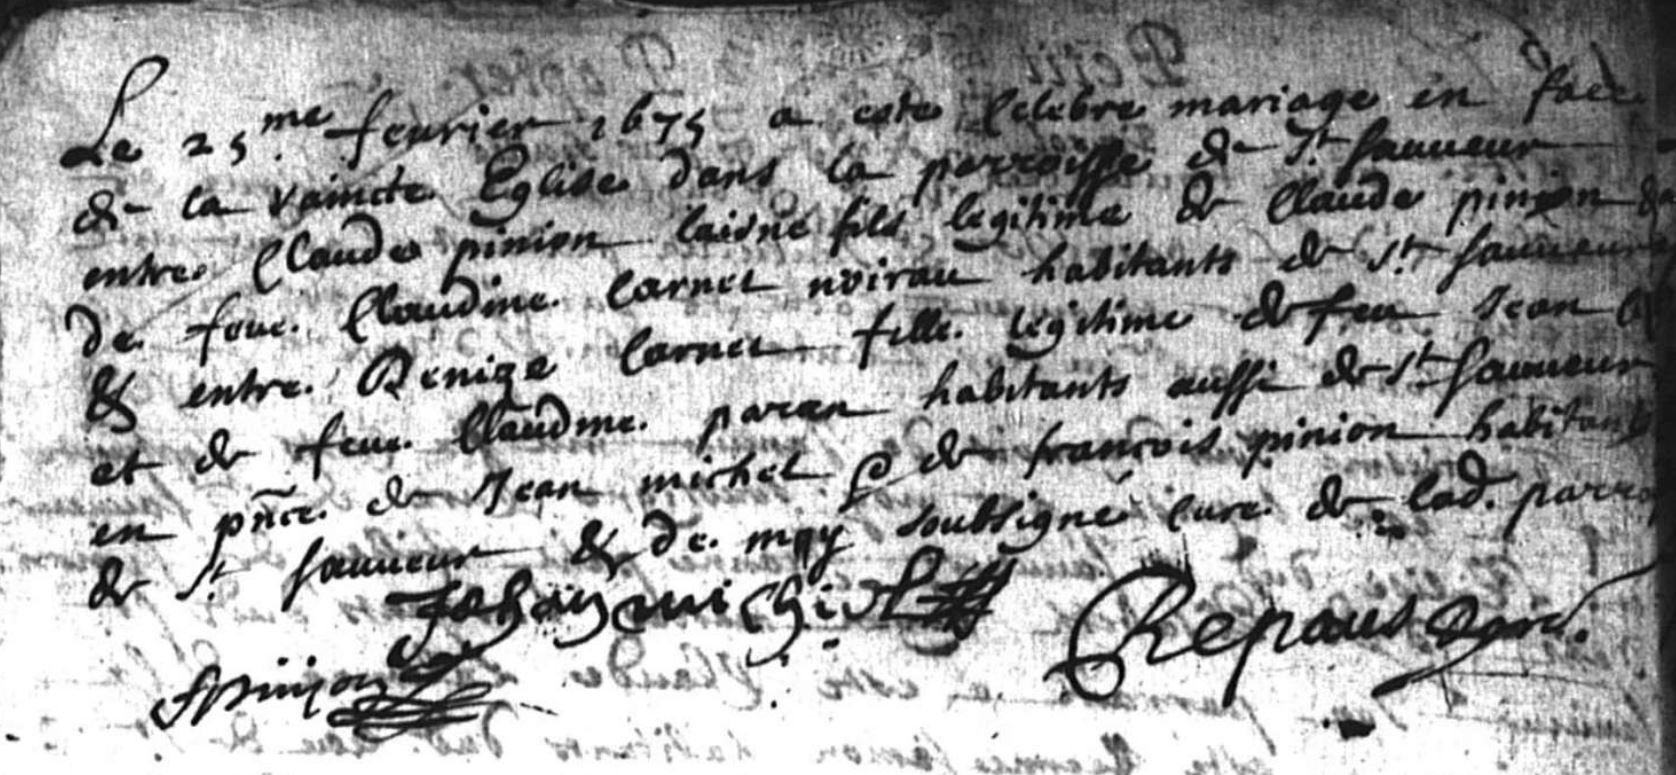 Le 25me feurier 1675 a este celebre mariage en face
de la saincte Eglise dans la parroisse de St sauueur
entre Claude pinion laisne fils legitime de Claude pinion &
de feue Claudine Carnet noirau habitants de St sauueur
& entre Benize Carnet fille legitime de feu Jean
et de feue Claudine paran habitants aussi de St sauueur
en pnce de Jean michel & de francois pinion habitants
de St sauueur & de moy soubsigné cure de lad. parro
Jehan michel
Repaus
fpinion